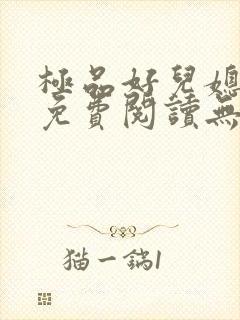 極品好兒媳
免費閱讀無
猫一鍋1